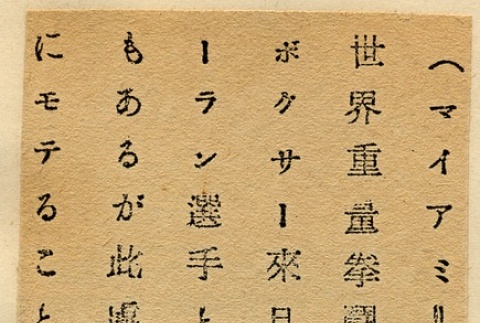 （マイアミ
世界重量拳闘
ボクサー來日
ーラン選手と
もあるが此
にモテること